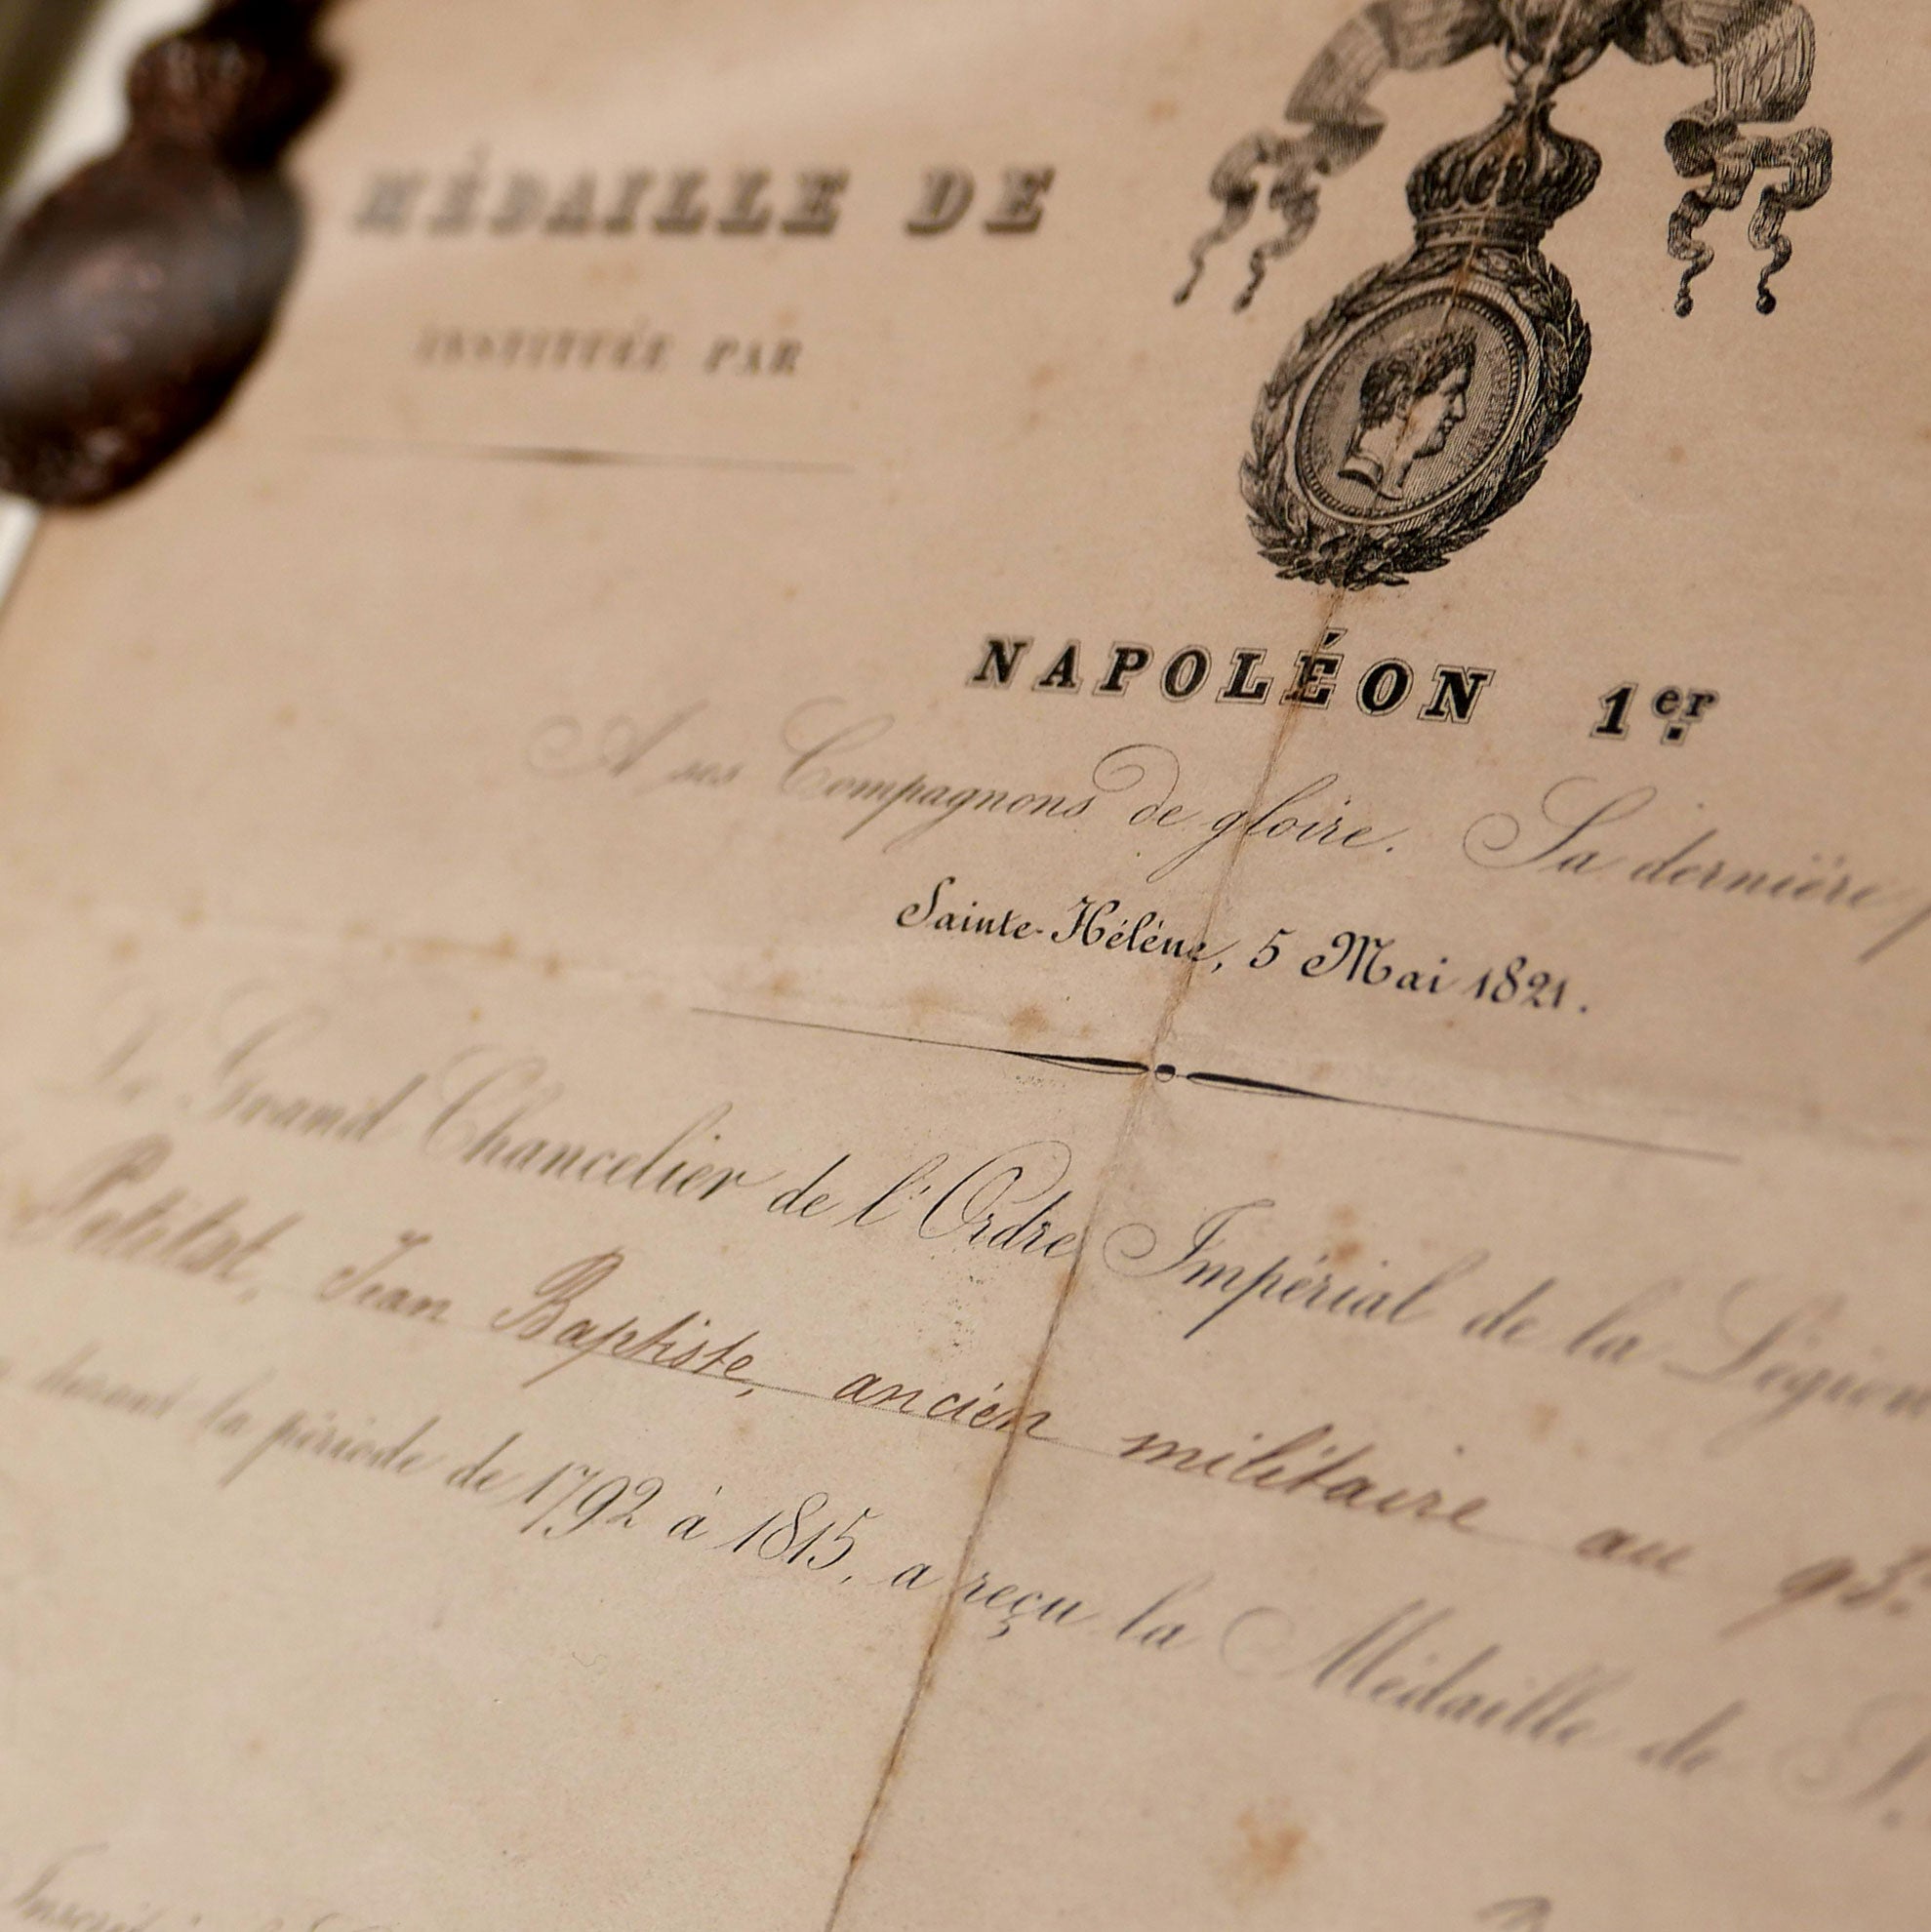 MÉDAILLE DE
INSTITUÉE PAR
NAPOLÉON 1er
A ses Compagnons de gloire. Sa dernière
Sainte-Hélène, 5 Mai 1821.
Le Grand Chancelier de l'Ordre Impérial de la Légion
Petitot, Jean Baptiste, ancien militaire au 93e
durant la période de 1792 à 1815, a reçu la Médaille de